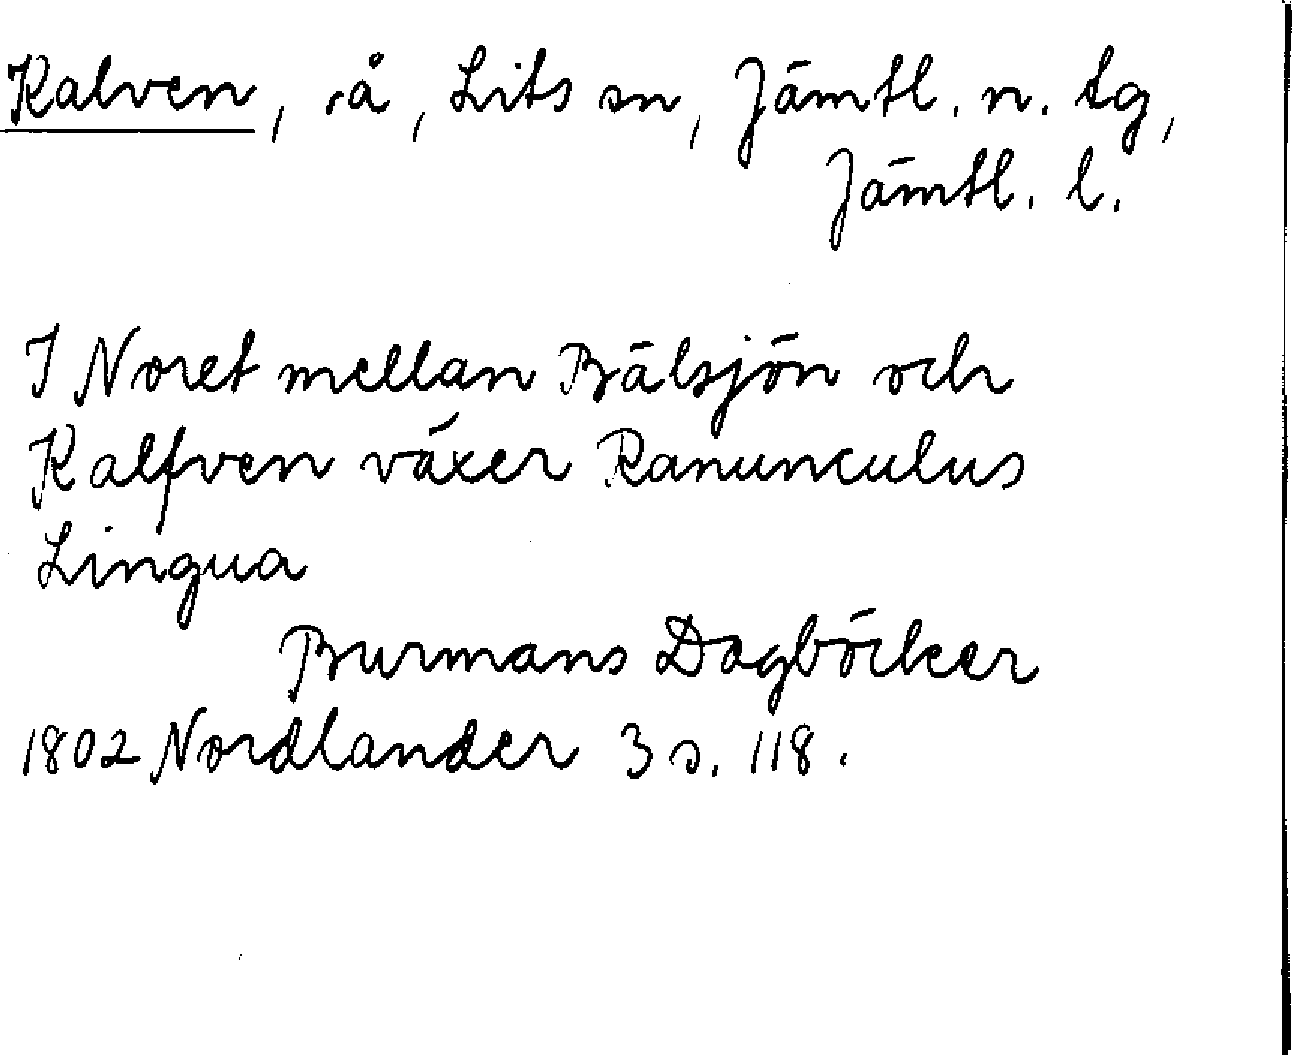 Kalven, å, Lits sn, Jämtl. n. tg,
Jämtl. l.
I Noret mellan Bälsjön och
Kalfven växer Ranunculus
Lingua
Burmans Dagböcker
1802 Nordlander 3 s. 118.